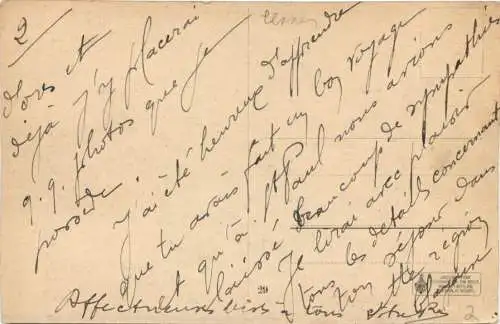 2/
d'ores et
déjà j'y placerai
q.q. photos que je
possède.
J'ai été heureux d'apprendre
que tu avais fait un bon voyage
et qu'à St Paul nous avions
laissé beaucoup de sympathies
Je lirai avec plaisir
tous les détails concernant
ton séjour dans
cette région
Affectueuses à tous
29
2